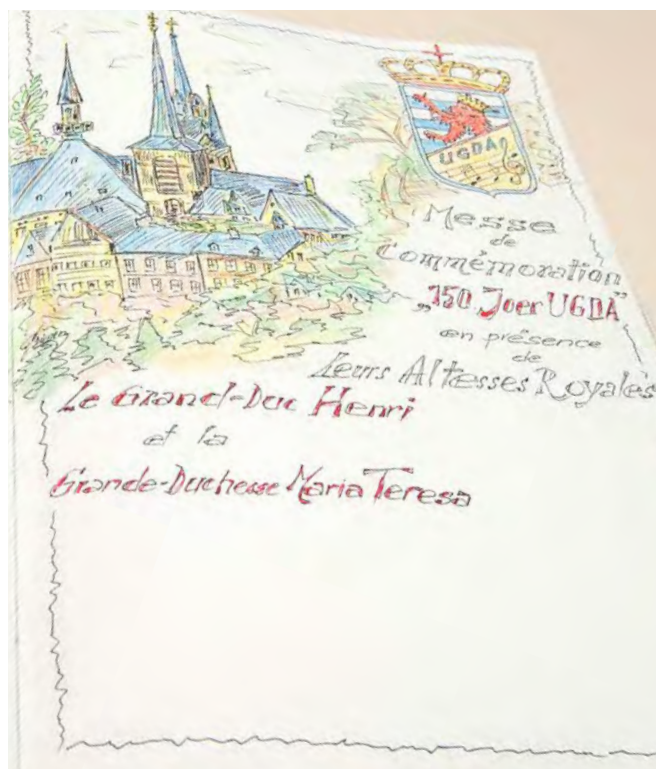 UGDA
Messe
de
Commémoration
„150 Joer UGDA"
en présence
de
Leurs Altesses Royales
Le Grand-Duc Henri
et la
Grande-Duchesse Maria Teresa